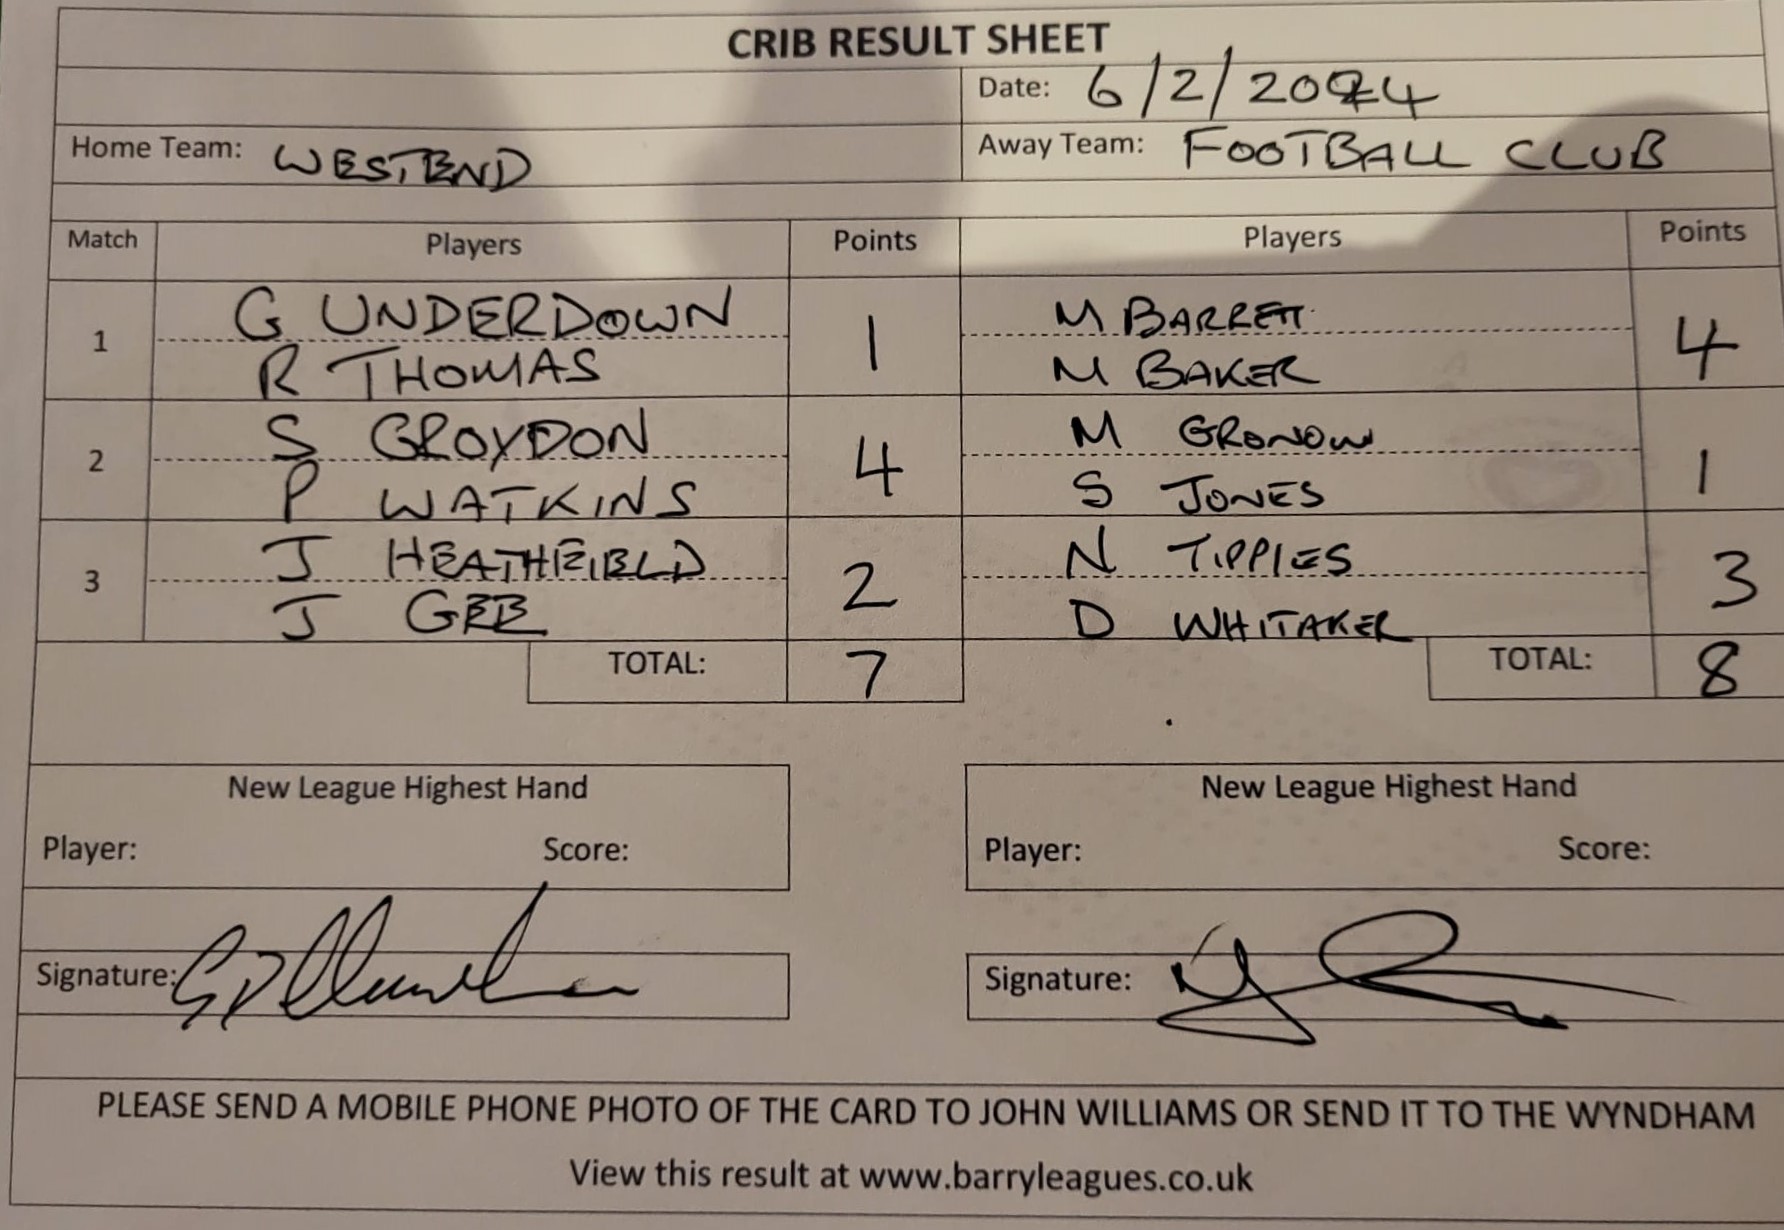 CRIB RESULT SHEET
Date: 6/2/2024
Home Team: WESTEND Away Team: FOOTBALL CLUB
Match Players Points Players Points
G UNDERDOWN M BARRETT
1 1 4
R THOMAS M BAKER
S CROYDON M GRONOW
2 4 1
P WATKINS S JONES
J HEATHFIELD N TIPPLES
3 2 3
J GEE D WHITAKER
TOTAL: 7 TOTAL: 8
New League Highest Hand New League Highest Hand
Player: Score: Player: Score:
Signature: Signature:
PLEASE SEND A MOBILE PHONE PHOTO OF THE CARD TO JOHN WILLIAMS OR SEND IT TO THE WYNDHAM
View this result at www.barryleagues.co.uk